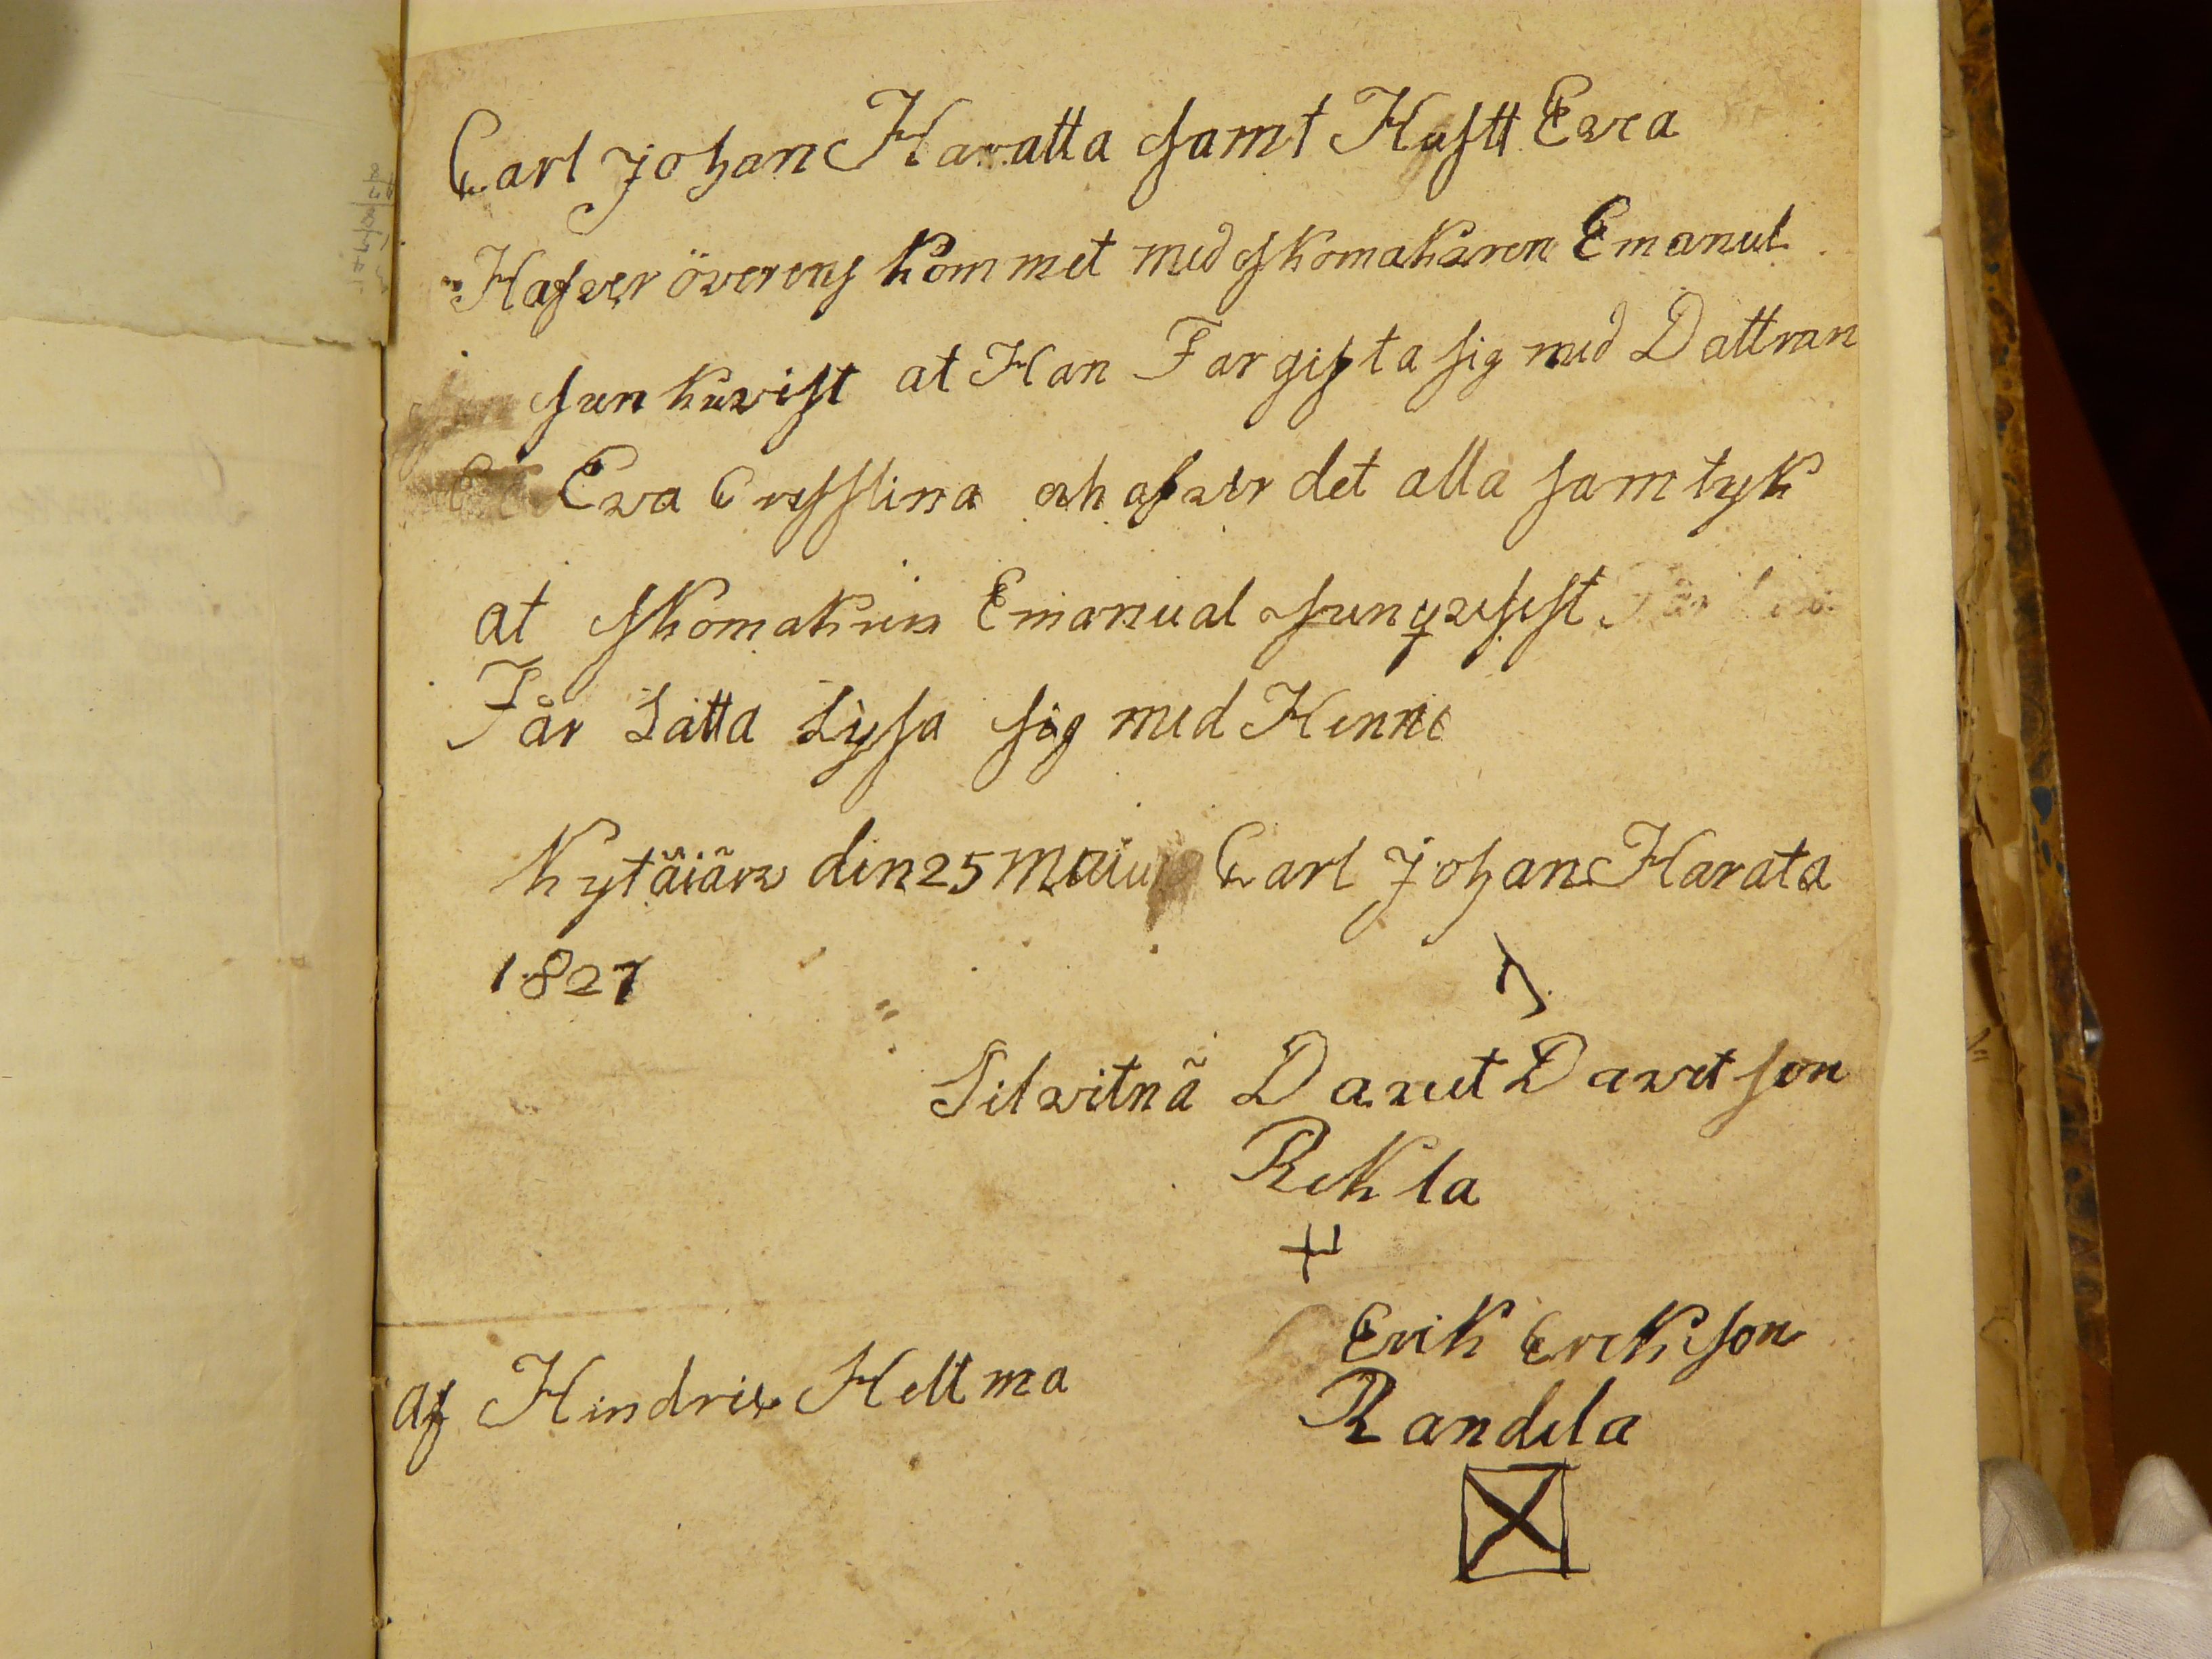 Carl Johan Haratta samt Hustt Ewa
Hafwer överens kommet med skomakaren Emanul
sunkuwist at Han Far gifta sig med Dattran
Ewa Cresstina oh afwer det alla samtyk
at skomakren Emanual sunqwist
Får Latta Lysa sig med Henne
Kytäiärw den 25 Maius Carl Johan Harata
1827
Tilwitnä Dawet Dawetson
Rekla
Erik Erekson
af Hindrix Heltma
Randela